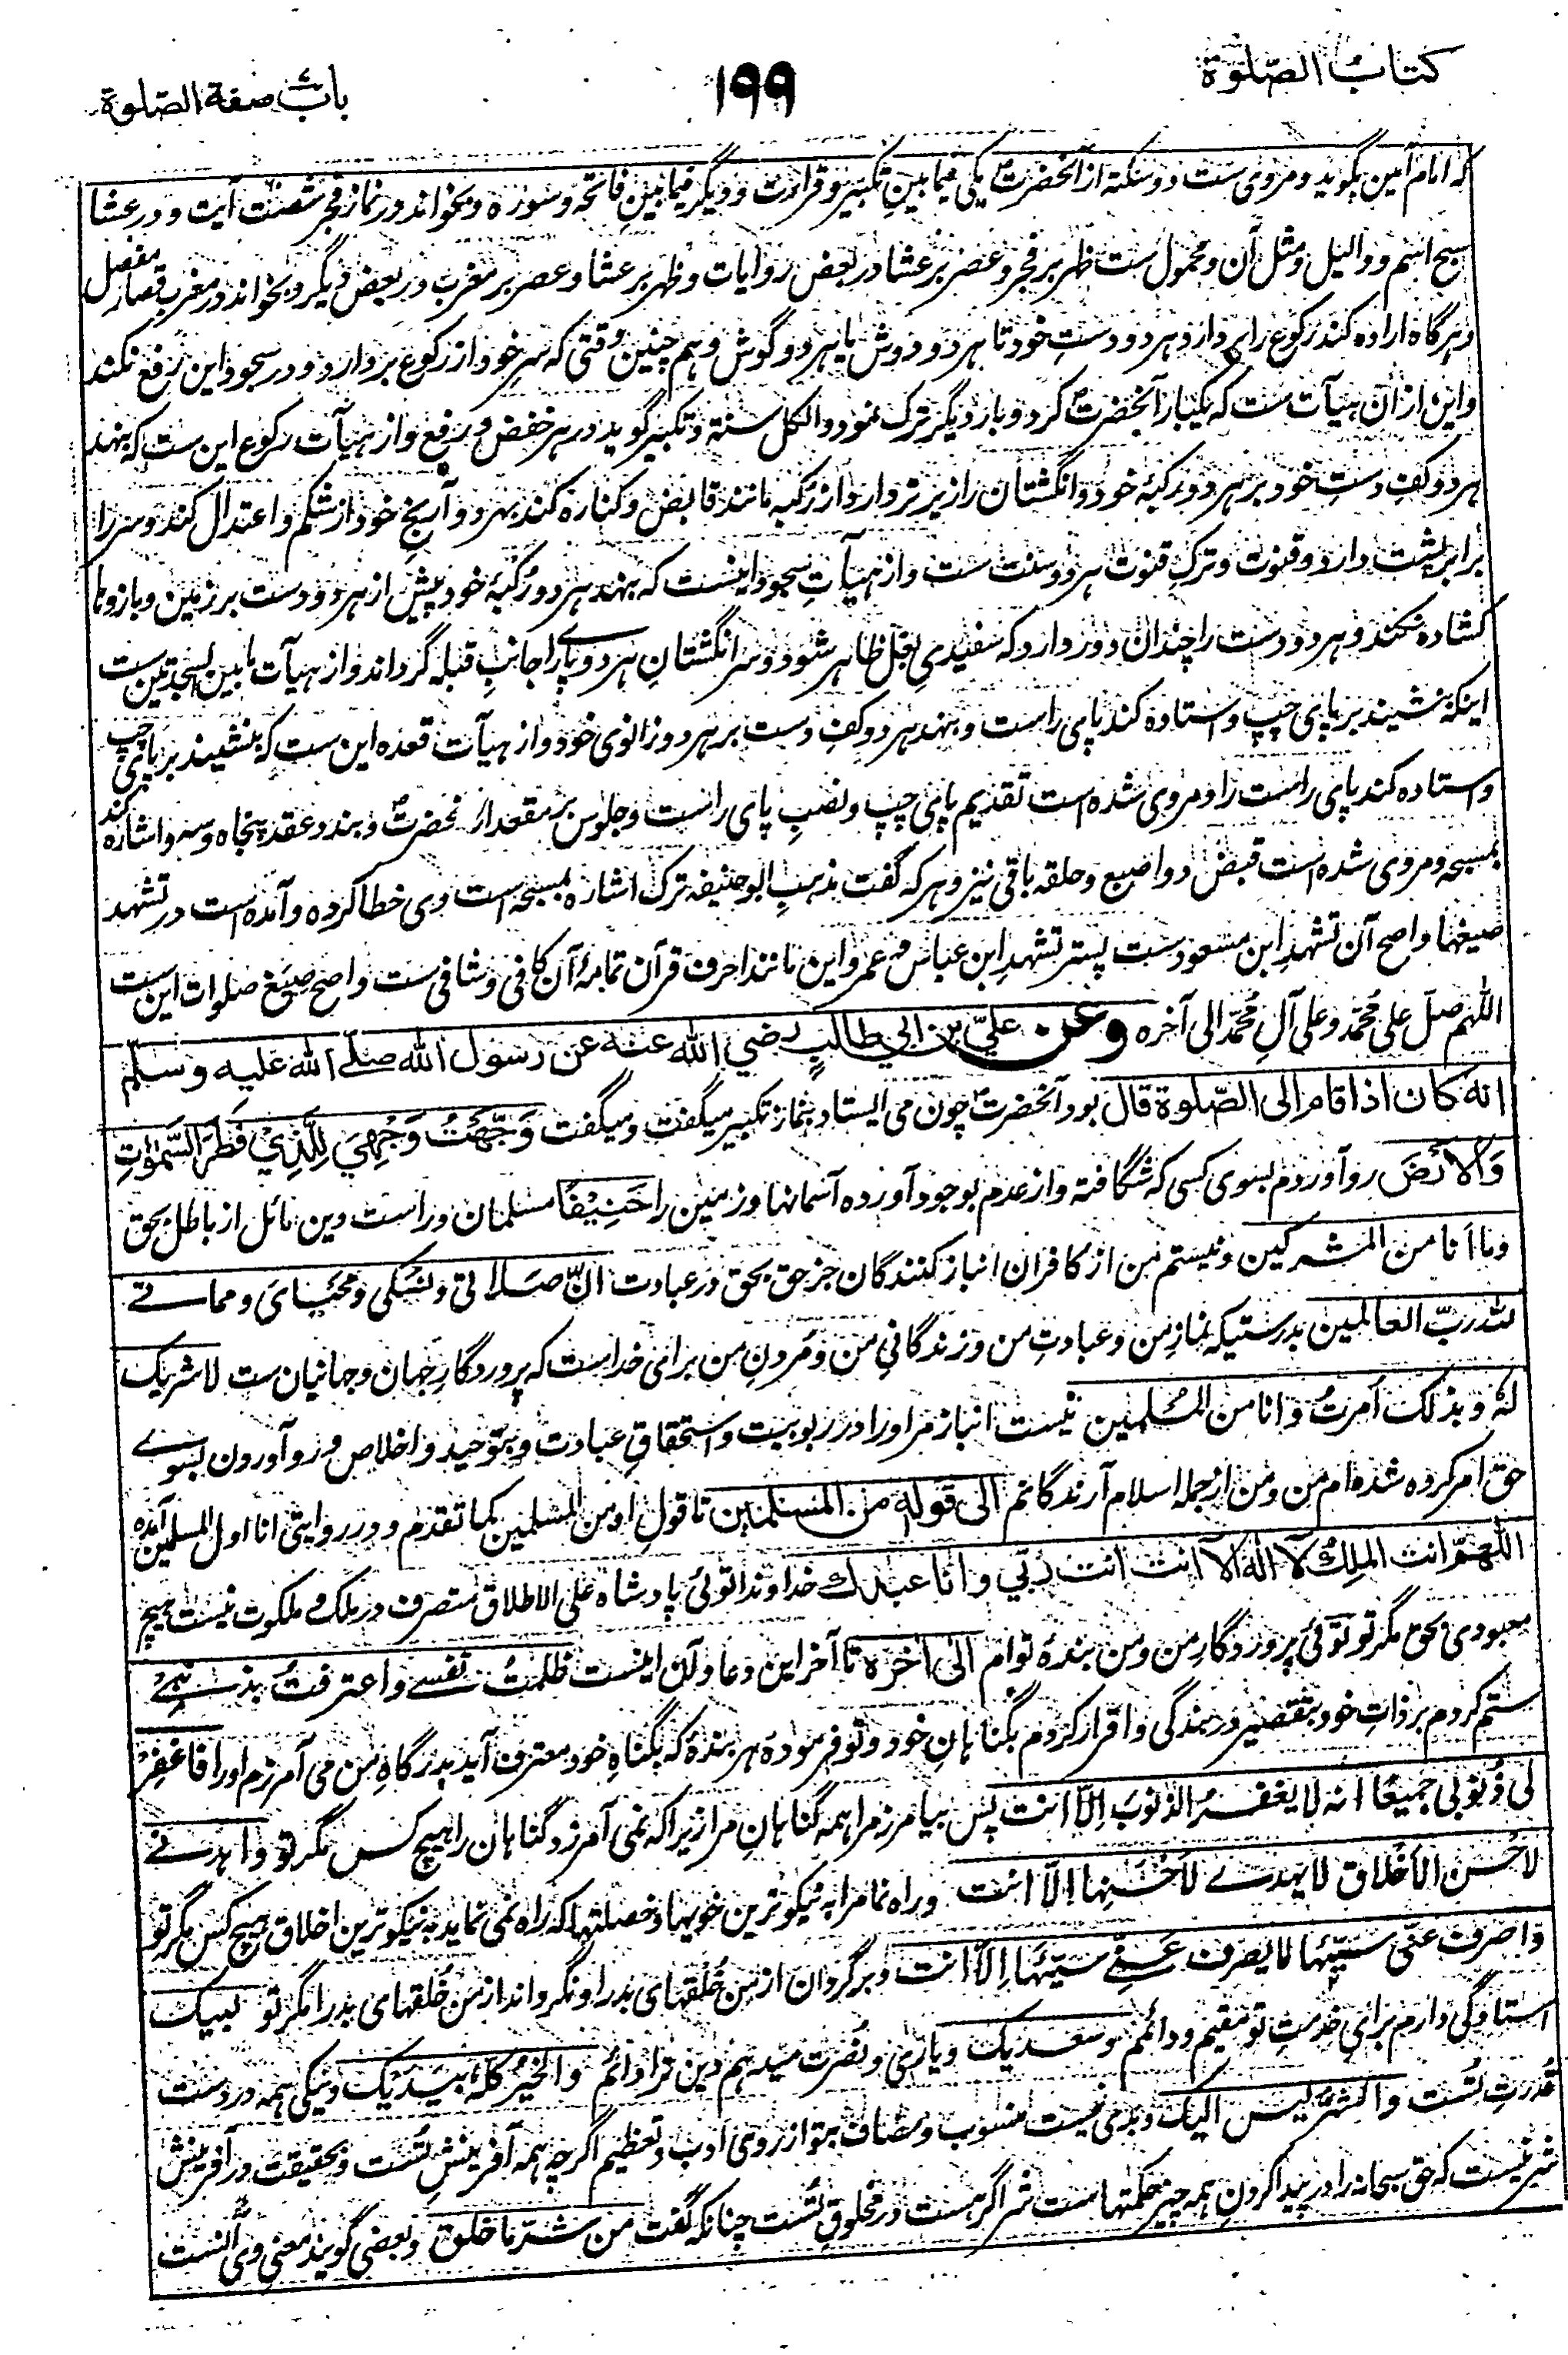 کتاب الصّلوة
۱۹۹
باب صفة الصّلوة
که امام آمین بگوید و مروی ست دو سکته از آنحضرتؐ یکی فیما بین تکبیر و قراءت و دیگر فیما بین فاتحه و سوره و بخواند در نماز فجر شصت آیت و در عشا
سبح اسم و واللیل و مثل آن و محمول ست ظهر بر فجر و عصر بر عشا در بعض روایات و ظهر بر عشا و عصر بر مغرب در بعض دیگر و بخواند در مغرب قصار مفصل
و هرگاه اراده کند رکوع را بردارد هر دو دستِ خود تا هر دو دوش یا هر دو گوش و هم چنین وقتی که سرِ خود از رکوع بردارد و در سجود این رفع نکند
و این از ان هیآت ست که یکبار آنحضرتؐ کرد و بار دیگر ترک نمود و الکل سنة و تکبیر گوید در هر خفض و رفع و از هیآت رکوع این ست که بنهد
هر دو کفِ دستِ خود بر هر دو رکبهٔ خود و انگشتان را زیر تر دارد از رکبه مانند قابض و کناره کند بهر دو آرنجِ خود از شکم و اعتدال کند و سر را
برابر پشت دارد و قنوت و ترکِ قنوت هر دو سنت ست و از هیآتِ سجود اینست که بنهد هر دو رُکبهٔ خود پیش از هر دو دست بر زمین و بازوها
کشاده نکند و هر دو دست را چندان دور دارد که سفیدیِ بغل ظاهر شود و سرِ انگشتانِ هر دو پا را جانبِ قبله گرداند و از هیآت ما بین السجدتین ست
اینکه بنشیند بر پای چپ و استاده کند پای راست و بنهد هر دو کفِ دست بر هر دو زانوی خود و از هیآت قعده این ست که بنشیند بر پای چپ
و استاده کند پای راست را و مروی شده است تقدیم پای چپ و نصبِ پای راست و جلوس بر مقعد از نحضرتؐ و بندد عقد پنجاه و سه و اشاره کند
بمسبحه و مروی شده است قبض دو اصبع و حلقه باقی نیز و هر که گفت مذهبِ ابو حنیفه ترک اشاره بمسبحه است وی خطا کرده و آمده است در تشهد
صیغها و اصح آن تشهدِ ابن مسعود ست پستر تشهدِ ابن عباس و عمر و این مانند احرف قرآن تمامهٔ آن کافی و شافی ست و اصح صیغِ صلوات این ست
اللهم صل علی مُحمّد و علی آلِ مُحمّد الی آخره وعن علیّ بن ابي طالبٍ رضي الله عنه عن رسول الله صلّے الله علیه وسلّم
انه کان اذا قام الی الصّلوة قال بود آنحضرتؐ چون می ایستاد بنماز تکبیر میگفت و میگفت وَجَّهْتُ وَجْهِيَ لِلَّذِيْ فَطَرَ السَّمٰوٰتِ
وَالْاَرْضَ رو آوردم بسوی کسی که شگافته و از عدم بوجود آورده آسمانها و زمین را حَنِيْفًا مسلمان و راست دین مائل از باطل بحق
وما انا من المشرکین و نیستم من از کافران انباز کنندگان جز حق بحق در عبادت انّ صَلاتی و نُسُکی و مَحْیَایَ و مماتے
للّٰه ربّ العالمین بدرستیکه نمازِ من و عبادتِ من و زندگانیِ من و مُردنِ من برای خداست که پروردگارِ جهان و جهانیان ست لا شریک
لهٗ و بذلک اُمرتُ و انا من المُسلمین نیست انباز مر او را در ربوبیت و استحقاقِ عبادت و بتوحید و اخلاص و رو آوردن بسوے
حق امر کرده شده ام من و من از جمله اسلام آرندگانم الی قوله من المسلمین تا قولِ او من المسلمین کما تقدم و در روایتی انا اول المسلمین آمده
اللهمّ انت الملِکُ لآ اله الّا انت انت ربّي وانا عبدك خداوندا توئی پادشاه علی الاطلاق متصرف در ملک و ملکوت نیست هیچ
معبودی بحق مگر تو توئی پروردگارِ من و من بندهٔ توام الی آخره تا آخر این دعا و آن اینست ظلمتُ نفسے و اعترفتُ بذنبے
ستم کردم بر ذاتِ خود بتقصیر در بندگی و اقرار کردم بگناهانِ خود و تو فرمودهٔ هر بندهٔ که بگناهِ خود معترف آید بدرگاهِ من می آمرزم او را فاغفِرْ
لی ذُنوبی جمیعًا انه لا یغفرُ الذنوبَ اِلّا انت پس بیامرز مرا همه گناهانِ مرا زیرا که نمی آمرزد گناهان را هیچ کس مگر تو واهدنے
لاحسن الاخلاق لا یهدے لاحسنها اِلّا انت و راه نما مرا به نیکوترین خویها و خصلتها که راه نمی نماید به نیکوترین اخلاق هیچ کس مگر تو
واصرف عنّی سیّئها لا یصرف عنّے سیّئها اِلّا انت و برگردان از من خُلقهای بد را و نگرداند از من خُلقهای بد را مگر تو لبیک
استادگی دارم برای خدمتِ تو مقیم و دائم و سعدیک و یاری و نصرت میدهم دین ترا دائم والخیرُ کلّهٗ بیدیک و نیکی همه در دست
قدرتِ تُست والشرُّ لیس الیک و بدی نیست منسوب و مضاف بتو از روی ادب و تعظیم اگر چه همه آفرینشِ تُست و بحقیقت در آفرینش
شر نیست که حق سبحانه را در پیدا کردنِ همه چیز حکمتهاست شر اگر هست در مخلوقِ تُست چنانکه گفت من شرّ ما خلق و بعضی گویند معنی وی آنست